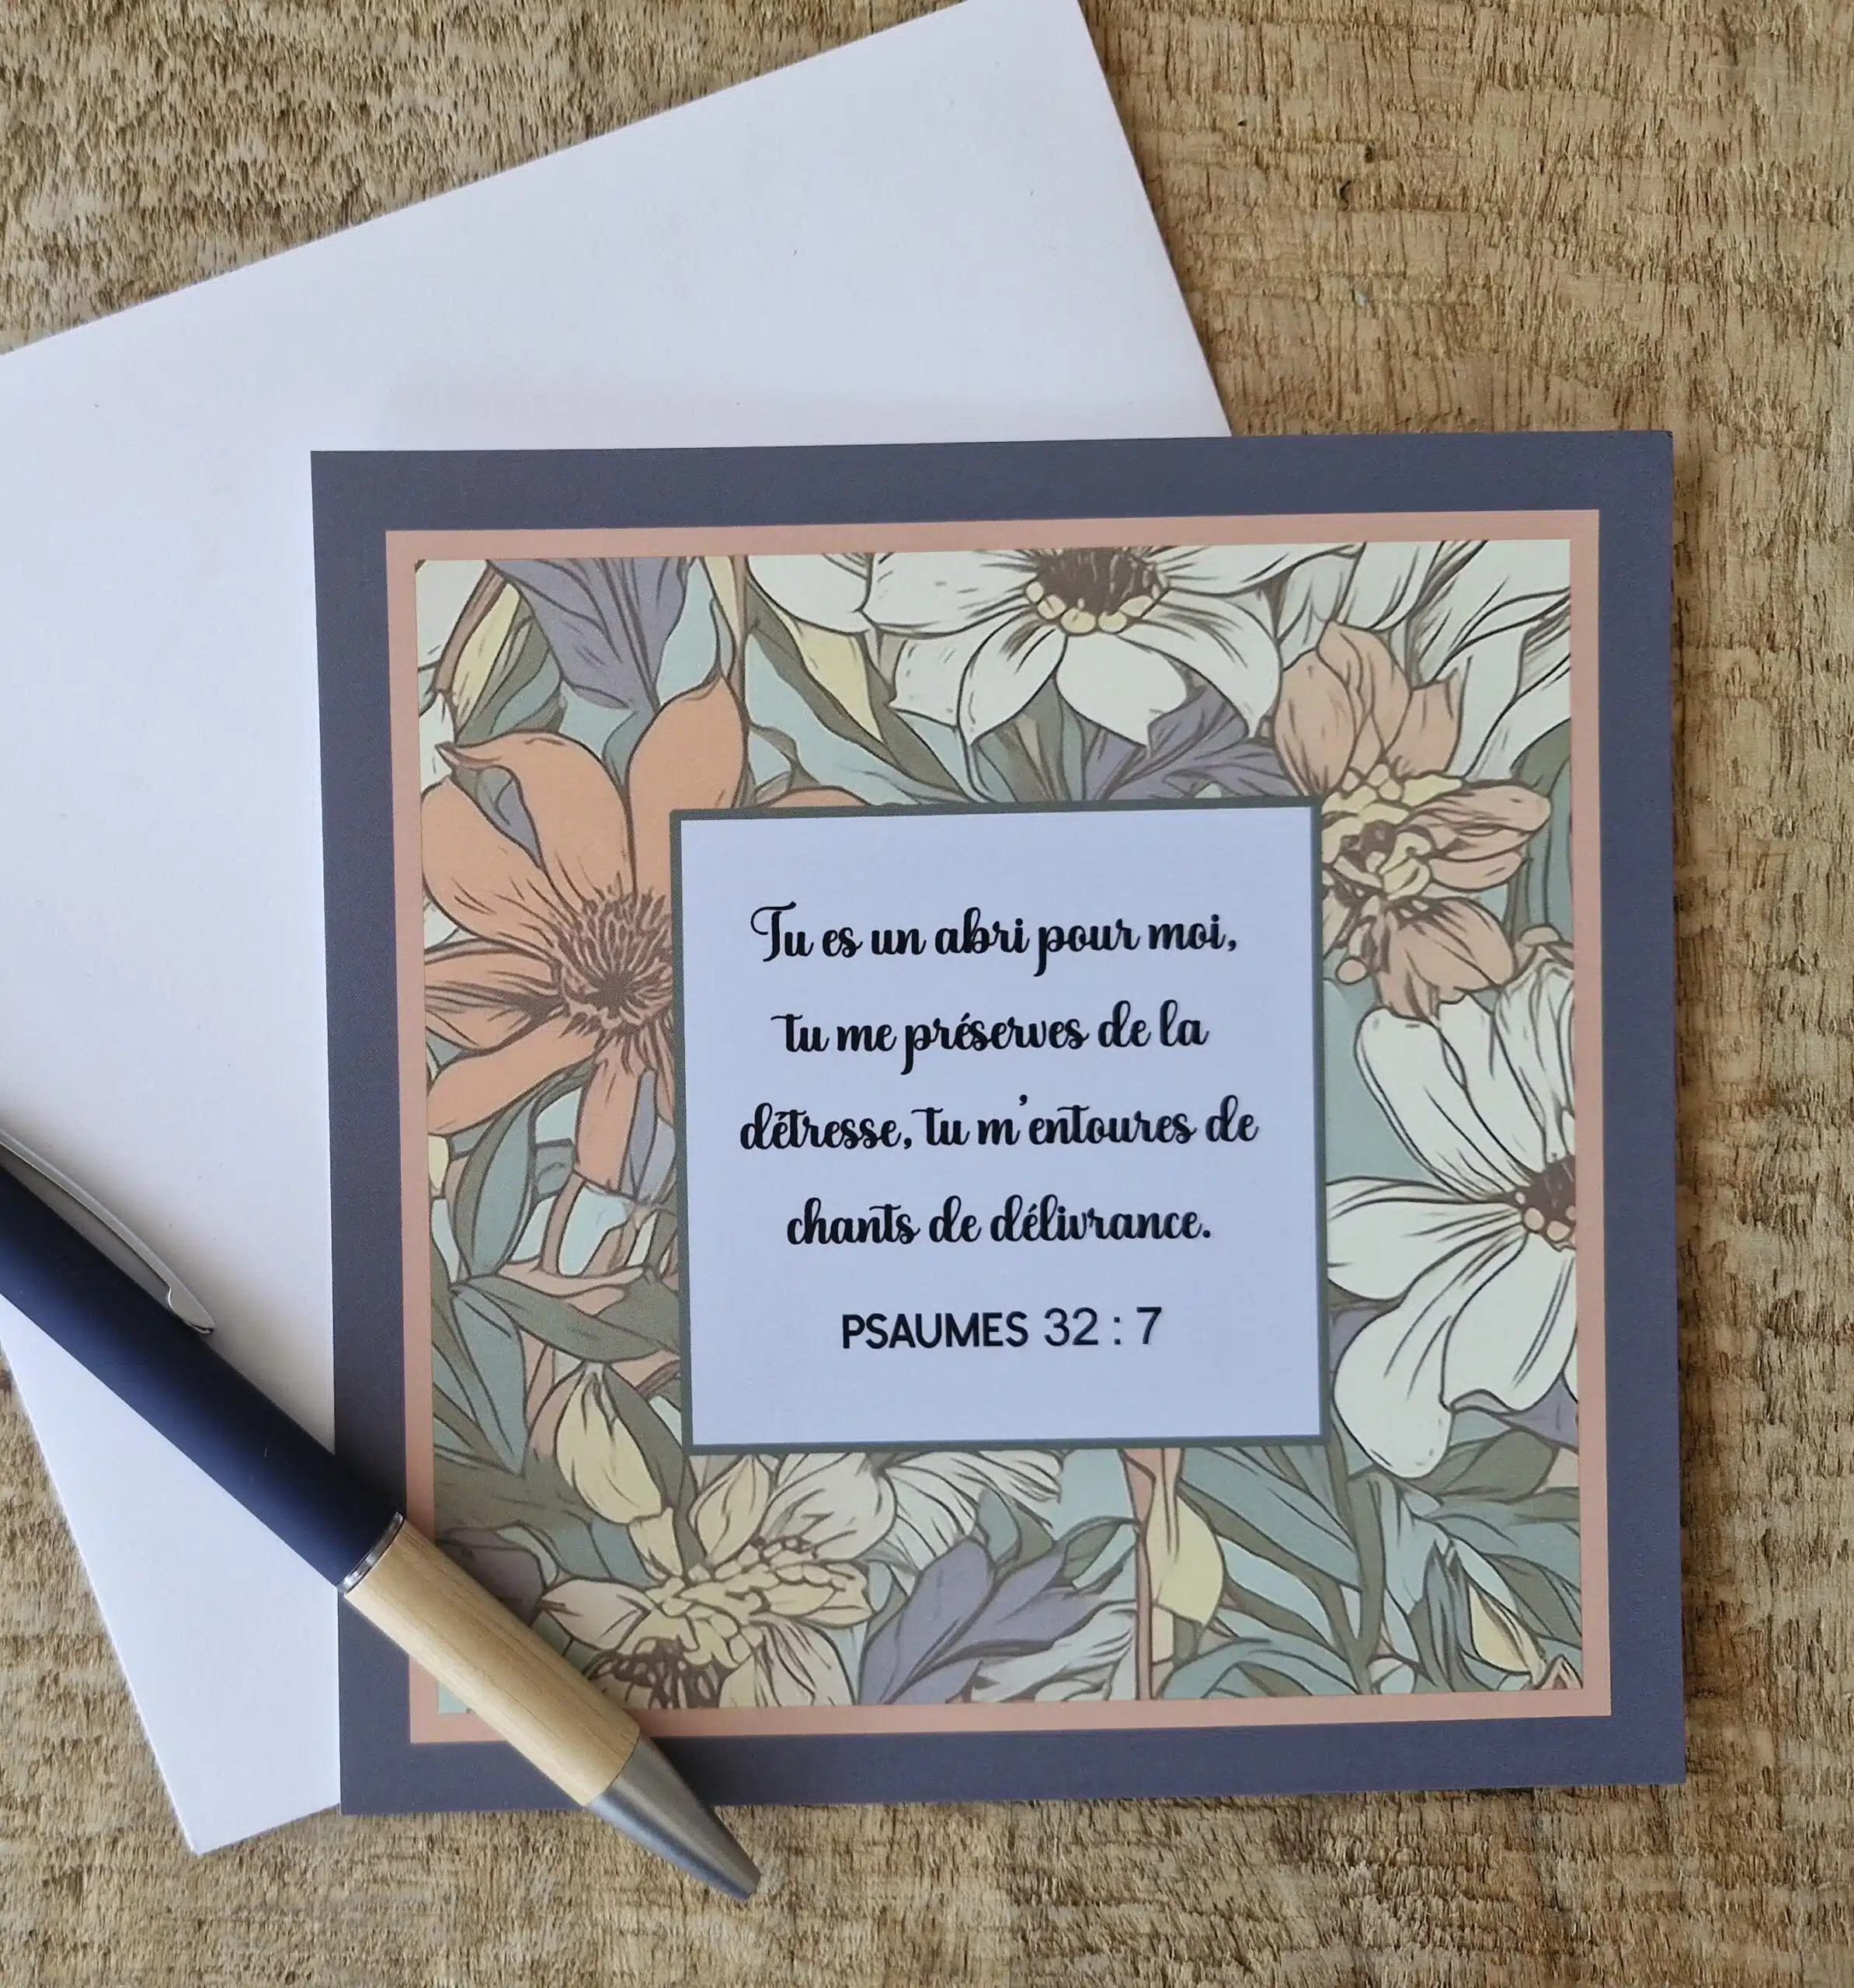 Tu es un abri pour moi,
tu me préserves de la
détresse, tu m'entoures de
chants de délivrance.
PSAUMES 32 : 7